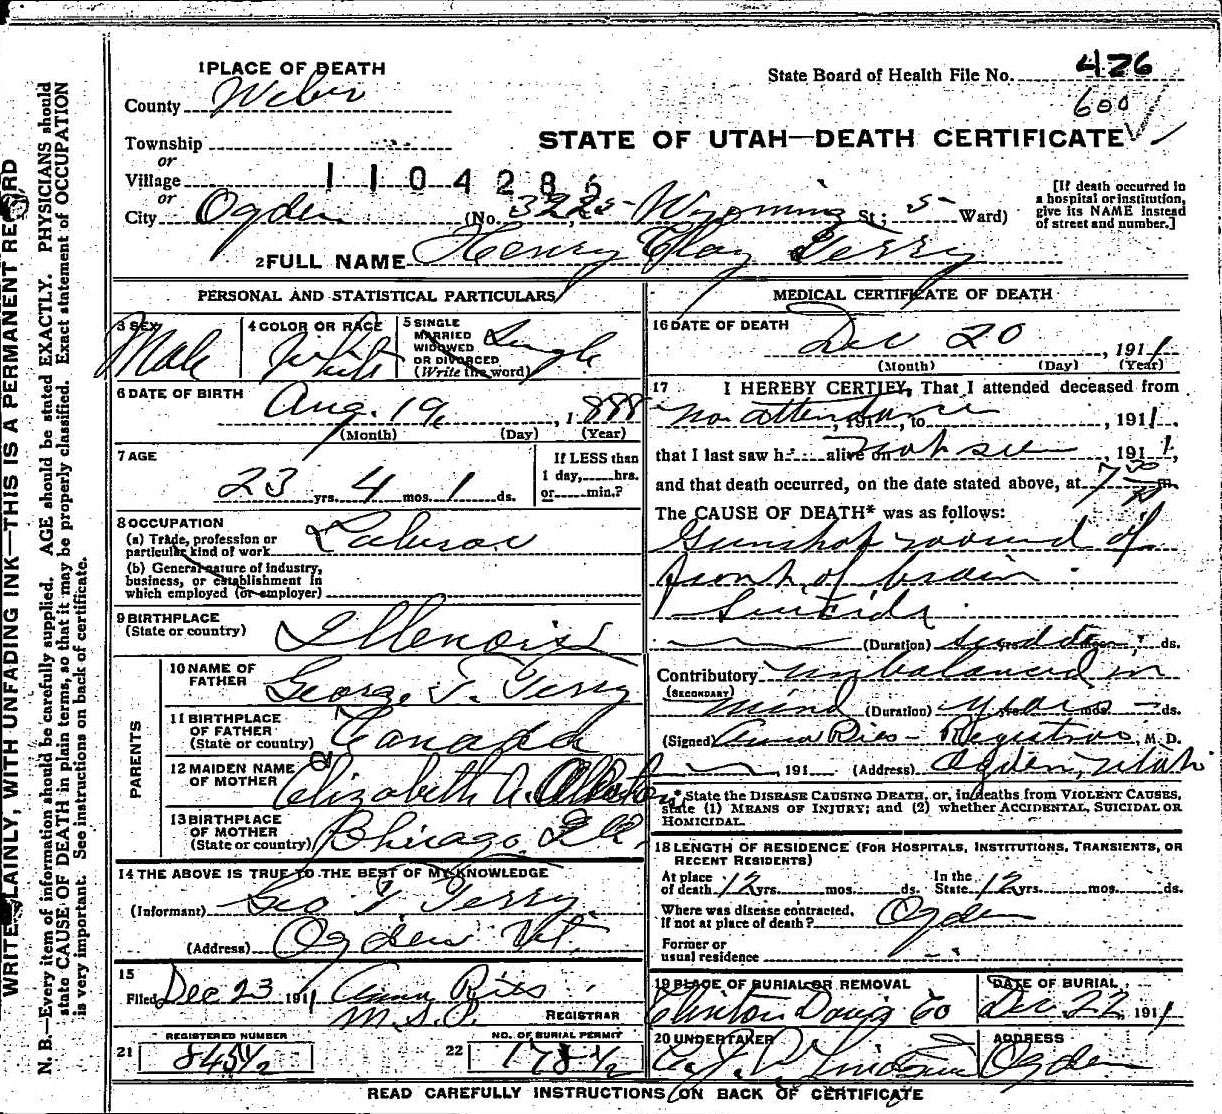 1 PLACE OF DEATH
State Board of Health File No. 426
County Weber
600
STATE OF UTAH—DEATH CERTIFICATE
Township
or
Village
1104286
or
City Ogden (No. 3225 Wyoming St; 5 Ward)
[If death occurred in
a hospital or institution,
give its NAME instead
of street and number.]
2 FULL NAME Henry Clay Terry
PERSONAL AND STATISTICAL PARTICULARS
3 SEX Male
4 COLOR OR RACE White
5 SINGLE
MARRIED
WIDOWED
OR DIVORCED
(Write the word) Single
6 DATE OF BIRTH Aug. 19, 1888
(Month) (Day) (Year)
7 AGE
23 yrs. 4 mos. 1 ds.
If LESS than
1 day, hrs.
or min.?
8 OCCUPATION
(a) Trade, profession or
particular kind of work Laborer
(b) General nature of industry,
business, or establishment in
which employed (or employer)
9 BIRTHPLACE
(State or country) Illenois
PARENTS
10 NAME OF
FATHER George T. Terry
11 BIRTHPLACE
OF FATHER
(State or country) Canada
12 MAIDEN NAME
OF MOTHER Elizabeth A.
13 BIRTHPLACE
OF MOTHER
(State or country) Chicago Ill.
14 THE ABOVE IS TRUE TO THE BEST OF MY KNOWLEDGE
(Informant) Geo T Terry
(Address) Ogden Ut.
15
Filed Dec 23 1911 Anna Ries
REGISTRAR
REGISTERED NUMBER
21 845½
NO. OF BURIAL PERMIT
22 178½
MEDICAL CERTIFICATE OF DEATH
16 DATE OF DEATH
Dec 20, 1911
(Month) (Day) (Year)
17 I HEREBY CERTIFY, That I attended deceased from
No attendance, 191, to , 1911.
that I last saw h alive on not seen, 1911,
and that death occurred, on the date stated above, at 7 30 m.
The CAUSE OF DEATH* was as follows:
Gunshot wound of
front of brain
Suicide.
(Duration) yrs. mos. ds.
Contributory unbalanced in
(SECONDARY)
mind (Duration) years mos. ds.
(Signed) Anna Ries - Registrar, M. D.
, 191 (Address) Ogden, Utah
*State the DISEASE CAUSING DEATH, or, in deaths from VIOLENT CAUSES,
state (1) MEANS OF INJURY; and (2) whether ACCIDENTAL, SUICIDAL OR
HOMICIDAL.
18 LENGTH OF RESIDENCE (FOR HOSPITALS, INSTITUTIONS, TRANSIENTS, OR
RECENT RESIDENTS)
At place
of death 12 yrs. mos. ds.
In the
State 12 yrs. mos. ds.
Where was disease contracted,
If not at place of death? Ogden
Former or
usual residence
19 PLACE OF BURIAL OR REMOVAL
Clinton Davis Co
DATE OF BURIAL
Dec 22, 1911
20 UNDERTAKER
ADDRESS
Ogden
READ CAREFULLY INSTRUCTIONS ON BACK OF CERTIFICATE
WRITE PLAINLY, WITH UNFADING INK—THIS IS A PERMANENT RECORD
N. B.—Every item of information should be carefully supplied. AGE should be stated EXACTLY. PHYSICIANS should
state CAUSE OF DEATH in plain terms, so that it may be properly classified. Exact statement of OCCUPATION
is very important. See instructions on back of certificate.